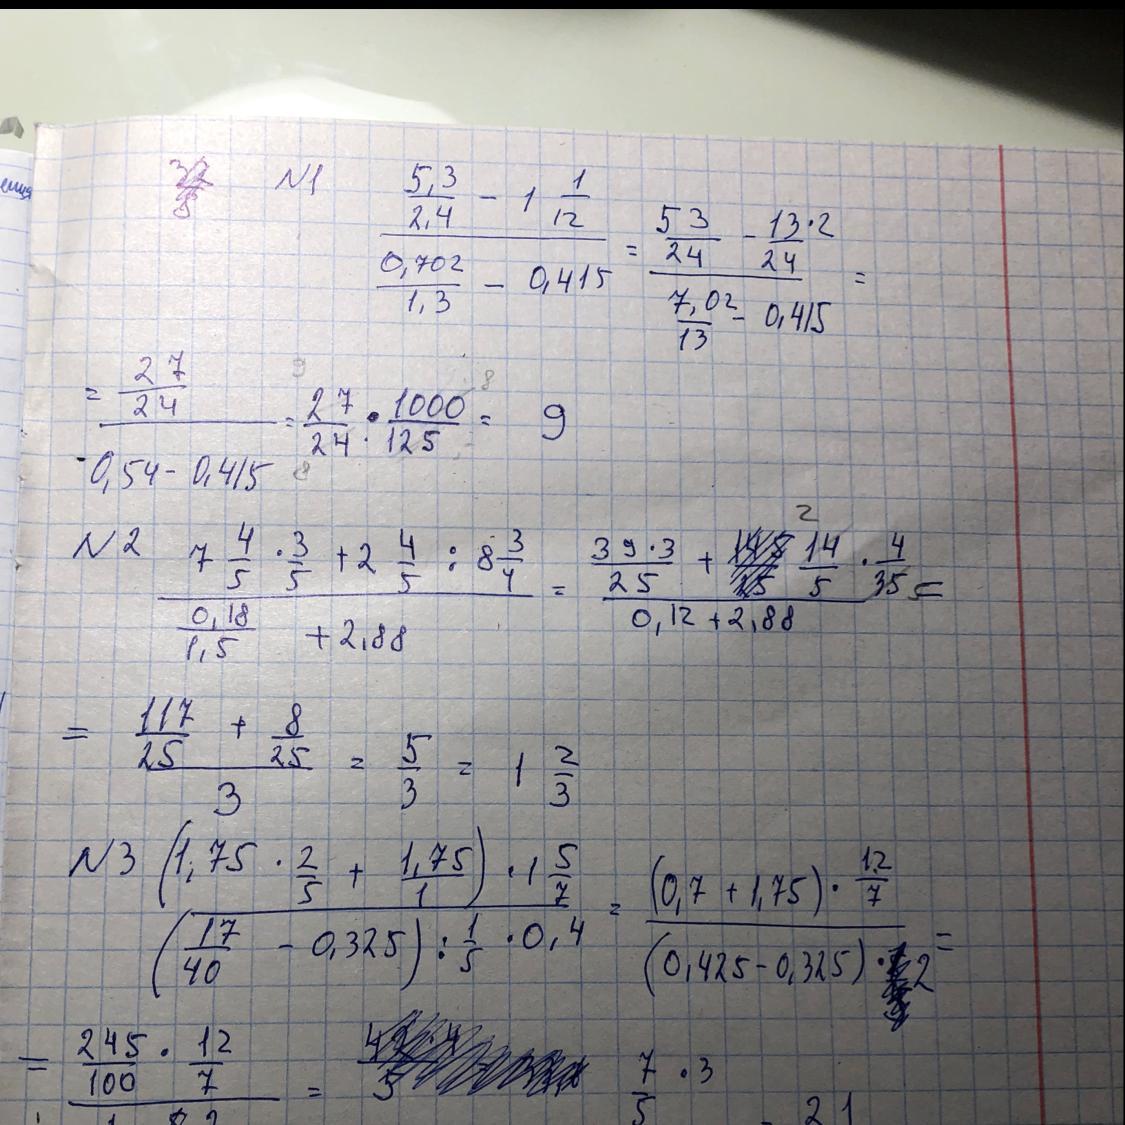 N1 5,3/2,4 - 1 1/12 / 0,702/1,3 - 0,415 = 53/24 - 13·2/24 / 7,02/13 - 0,415 =
= 27/24 / 0,54 - 0,415 = 27/24 · 1000/125 = 9
N2 7 4/5 · 3/5 + 2 4/5 : 8 3/4 / 0,18/1,5 + 2,88 = 39·3/25 + 14/5 · 4/35 / 0,12 + 2,88 =
= 117/25 + 8/25 / 3 = 5/3 = 1 2/3
N3 (1,75 · 2/5 + 1,75/1) · 1 5/7 / (17/40 - 0,325) : 1/5 · 0,4 = (0,7 + 1,75) · 12/7 / (0,425 - 0,325) · 2 =
= 245/100 · 12/7 = 7/5 · 3 21